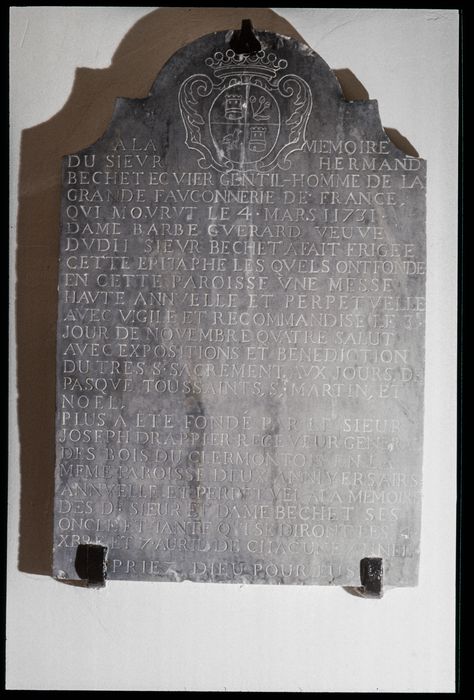 A LA MEMOIRE
DU SIEUR HERMAND
BECHET ECVIER GENTIL-HOMME DE LA
GRANDE FAVCONNERIE DE FRANCE,
QUI MOVRUT LE 4. MARS 1731.
DAME BARBE GUERARD VEUVE
DVDIT SIEUR BECHET A FAIT ERIGEE
CETTE EPITAPHE LES QVELS ONT FONDE
EN CETTE PAROISSE VNE MESSE
HAVTE ANNVELLE ET PERPETVELLE
AVEC VIGILE ET RECOMMANDISE LE 3.
JOUR DE NOVEMBRE QVATRE SALUT
AVEC EXPOSITIONS ET BENEDICTION
DU TRES St SACREMENT, AUX JOURS, DE
PASQVE, TOUSSAINTS, St MARTIN, ET
NOEL,
PLUS A ETE FONDÉ PAR LE SIEUR
JOSEPH DRAPPIER RECEVEUR GENER
DES BOIS DU CLERMONTOIS EN LA
MEME PAROISSE DEUX ANNIVERSAIRS
ANNVELLE ET PERPETVEL A LA MEMOIRE
DES DIT SIEUR ET DAME BECHET SES
ONCLE ET TANTE QUI SE DIRONT LES
DE CHACUNE
PRIEZ DIEU POUR EUS